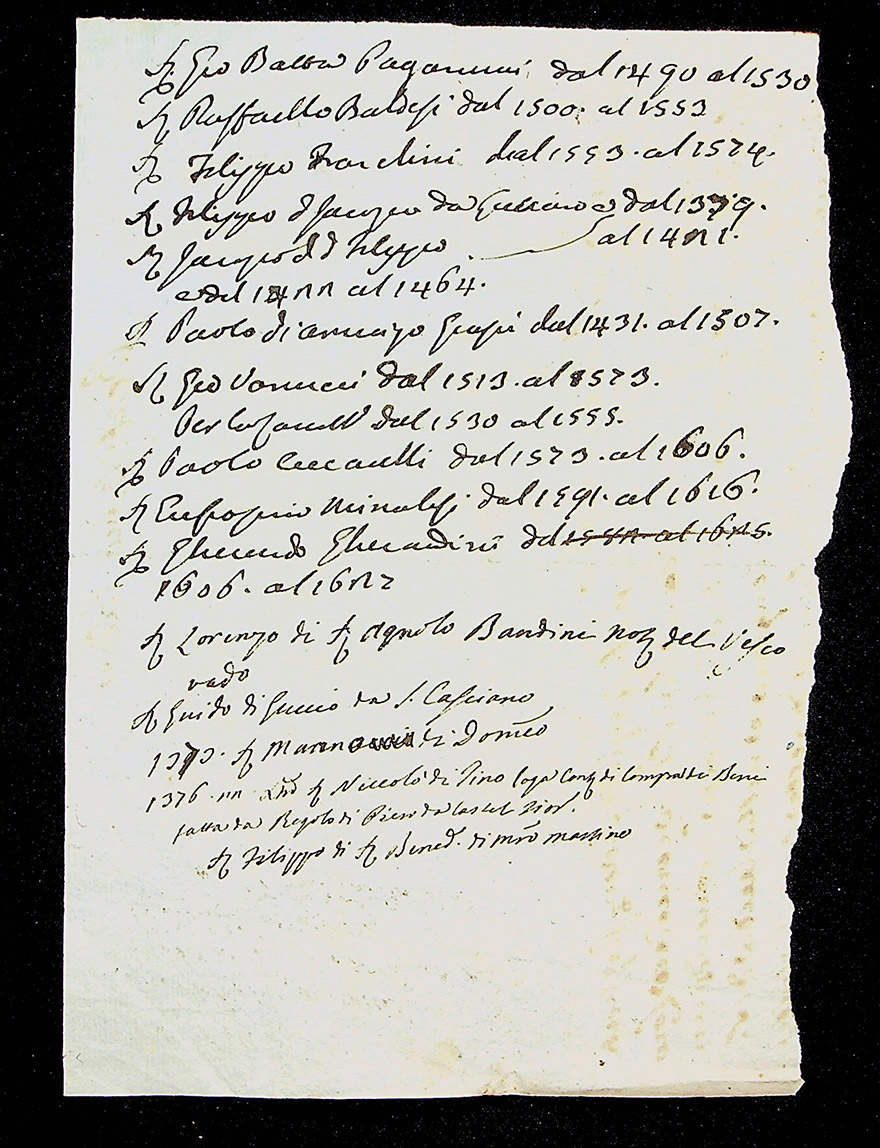 Sr Gio Batta Paganucci dal 1490 al 1530
Sr Raffaello Baldesi dal 1500. al 1553
Sr Filippo Franchini dal 1553. al 1574.
Sr Filippo d'Jacopo da e dal 1379.
Sr Jacopo di Filippo al 1421.
e dal 1422 al 1464.
Sr Paolo d'Amerigo Grassi dal 1431. al 1507.
Sr Gio Vanucci dal 1513. al 1573.
Per dal 1530 al 1555.
Sr Paolo Ceccarelli dal 1573. al 1606.
Sr Eufrosino Minaldesi dal 1591. al 1616.
Sr Gherardo Gherardini dal 1582 al 1625.
1606. al 1622
Sr Lorenzo di Sr Agnolo Bandini Not del Vesco
vado
Sr Guido di Guccio da S. Casciano
1373. Sr di Domco
1376. 22 Sr Niccolò di Pino di Compra di Beni
fatta da Regolo di Piero da Castel Fior.
Sr Filippo di Sr Bened. di mro mattino